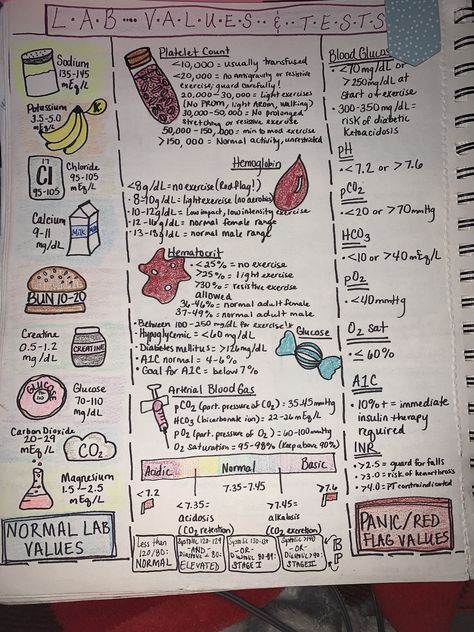 LAB VALUES & TESTS
Sodium
135-145
mEq/L
Potassium
3.5-5.0
mEq/L
K
Cl
95-105
Chloride
95-105
mEq/L
Calcium
9-11
mg/dL
MILK
BUN 10-20
Creatine
0.5-1.2
mg/dL
CREATINE
GLUCOSE
Glucose
70-110
mg/dL
Carbon Dioxide
20-29
mEq/L
CO2
Magnesium
1.5-2.5
mEq/L
NORMAL LAB
VALUES
Platelet Count
<10,000 = usually transfused
<20,000 = no antigravity or resistive
exercise; guard carefully!
20,000-30,000 = Light exercises
(No PROM, light AROM, walking)
30,000-50,000 = No prolonged
stretching or resistive exercise
50,000-150,000 = min to mod exercise
>150,000 = Normal activity, unrestricted
Hemoglobin
<8g/dL = no exercise (Red flag!)
• 8-10g/dL = light exercise (no aerobic)
• 10-12g/dL = Low impact, low intensity exercise
• 12-16g/dL = normal female range
• 13-18g/dL = normal male range
Hematocrit
• <25% = no exercise
>25% = light exercise
>30% = resistive exercise
allowed
36-46% = normal adult female
37-49% = normal adult male
• Between 100-250 mg/dL for exercise
• Hypoglycemic = <60 mg/dL
• Diabetes mellitus = >126mg/dL
• A1C normal = 4-6%
• Goal for A1C = below 7%
Glucose
Arterial Blood Gas
pCO2 (part. pressure of CO2) = 35-45mmHg
HCO3 (bicarbonate ion) = 22-26mEq/L
pO2 (part. pressure of O2) = 60-100mmHg
O2 saturation = 95-98% (Keep above 90%)
Acidic Normal Basic
<7.2 7.35-7.45 >7.6
<7.35= >7.45=
acidosis alkalosis
(CO2 retention) (CO2 excretion)
Less than
120/80:
NORMAL
Systolic 120-129
-AND-
Diastolic <80:
ELEVATED
Systolic 130-139
-OR-
Diastolic 80-89:
STAGE I
Systolic >140
-OR-
Diastolic >90:
STAGE II
BP
Blood Glucose
• <70mg/dL or
>250mg/dL at
start of exercise
• 300-350mg/dL =
risk of diabetic
Ketoacidosis
pH
• <7.2 or >7.6
pCO2
• <20 or >70mmHg
HCO3
• <10 or >40mEq/L
pO2
• <40mmHg
O2 sat
• ≤60%
A1C
• 10%+ = immediate
insulin therapy
required
INR
• >2.5 = guard for falls
• >3.0 = risk of hemarthrosis
• >4.0 = PT contraindicated
PANIC/RED
FLAG VALUES